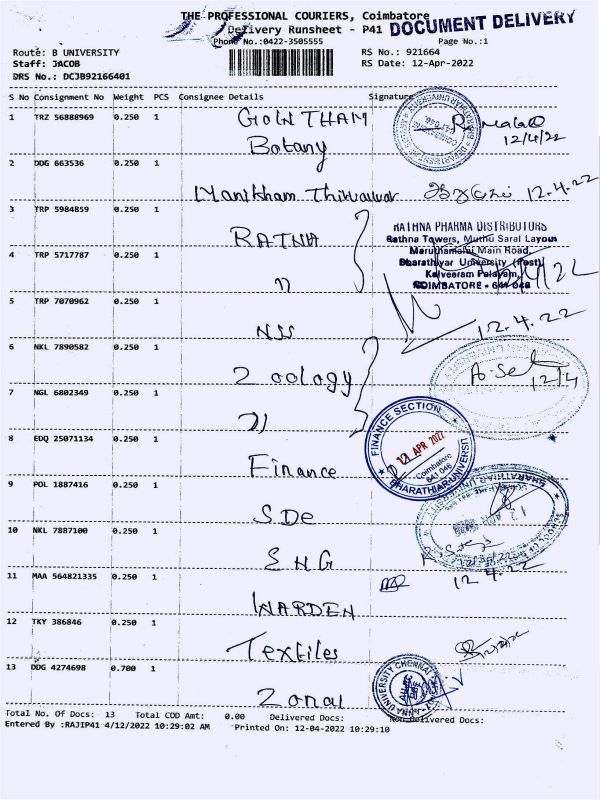 THE PROFESSIONAL COURIERS, Coimbatore
Delivery Runsheet - P41
DOCUMENT DELIVERY
Phone No.:0422-3505555
Page No.:1
Route: B UNIVERSITY
RS No.: 921664
Staff: JACOB
RS Date: 12-Apr-2022
DRS No.: DCJB92166401
S No Consignment No Weight PCS Consignee Details Signature
1 TRZ 56888969 0.250 1 GOWTHAM
Botany
12/4/22
2 DDG 663536 0.250 1
Manikham 12.4.22
3 TRP 5984859 0.250 1 RATNA
RATHNA PHARMA DISTRIBUTORS
Rathna Towers, Muthu Saral Layout
Maruthamalai Main Road,
Bharathiyar University (Post)
Kalveeram Palayam,
COIMBATORE - 641 046
4 TRP 5717787 0.250 1 "
5 TRP 7070962 0.250 1
NSS 12.4.22
6 NKL 7890582 0.250 1
Zoology 12/4
7 NGL 6802349 0.250 1
"
FINANCE SECTION
APR 2022
Coimbatore
641 046
BHARATHIAR UNIVERSITY
8 EDQ 25071134 0.250 1
Finance
9 POL 1887416 0.250 1
SDe
10 NKL 7887100 0.250 1
ENG
12.4.22
11 MAA 564821335 0.250 1
WARDEN
12 TKY 386846 0.250 1
Textiles
13 DDG 4274698 0.700 1
Zonal
ANNA UNIVERSITY CHENNAI
Total No. Of Docs: 13 Total COD Amt: 0.00 Delivered Docs: Non Delivered Docs:
Entered By :RAJIP41 4/12/2022 10:29:02 AM Printed On: 12-04-2022 10:29:10